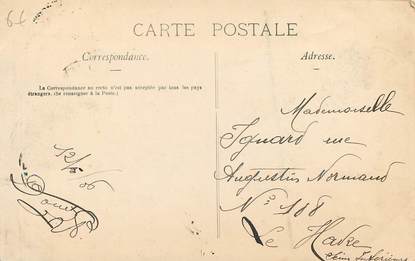 6f
CARTE POSTALE
Correspondance.
Adresse.
La Correspondance au recto n'est pas acceptée par tous les pays
étrangers. (Se renseigner à la Poste.)
Mademoiselle
Ignard rue
Augustin Normand
N° 188
Le Havre
Seine Inférieure
12/ /06